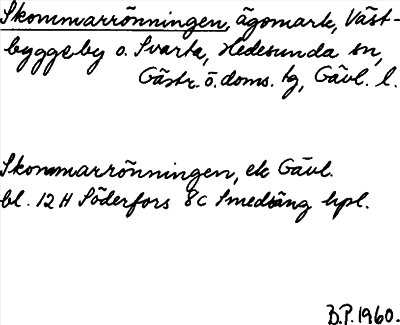 Skommarrönningen, ägomark, Väst-
byggeby o. Svarta, Hedesunda sn,
Gästr. ö. doms. tg, Gävl. l.
Skommarrönningen, ek Gävl.
bl. 12 H Söderfors 8c Smedsäng hpl.
B.P. 1960.